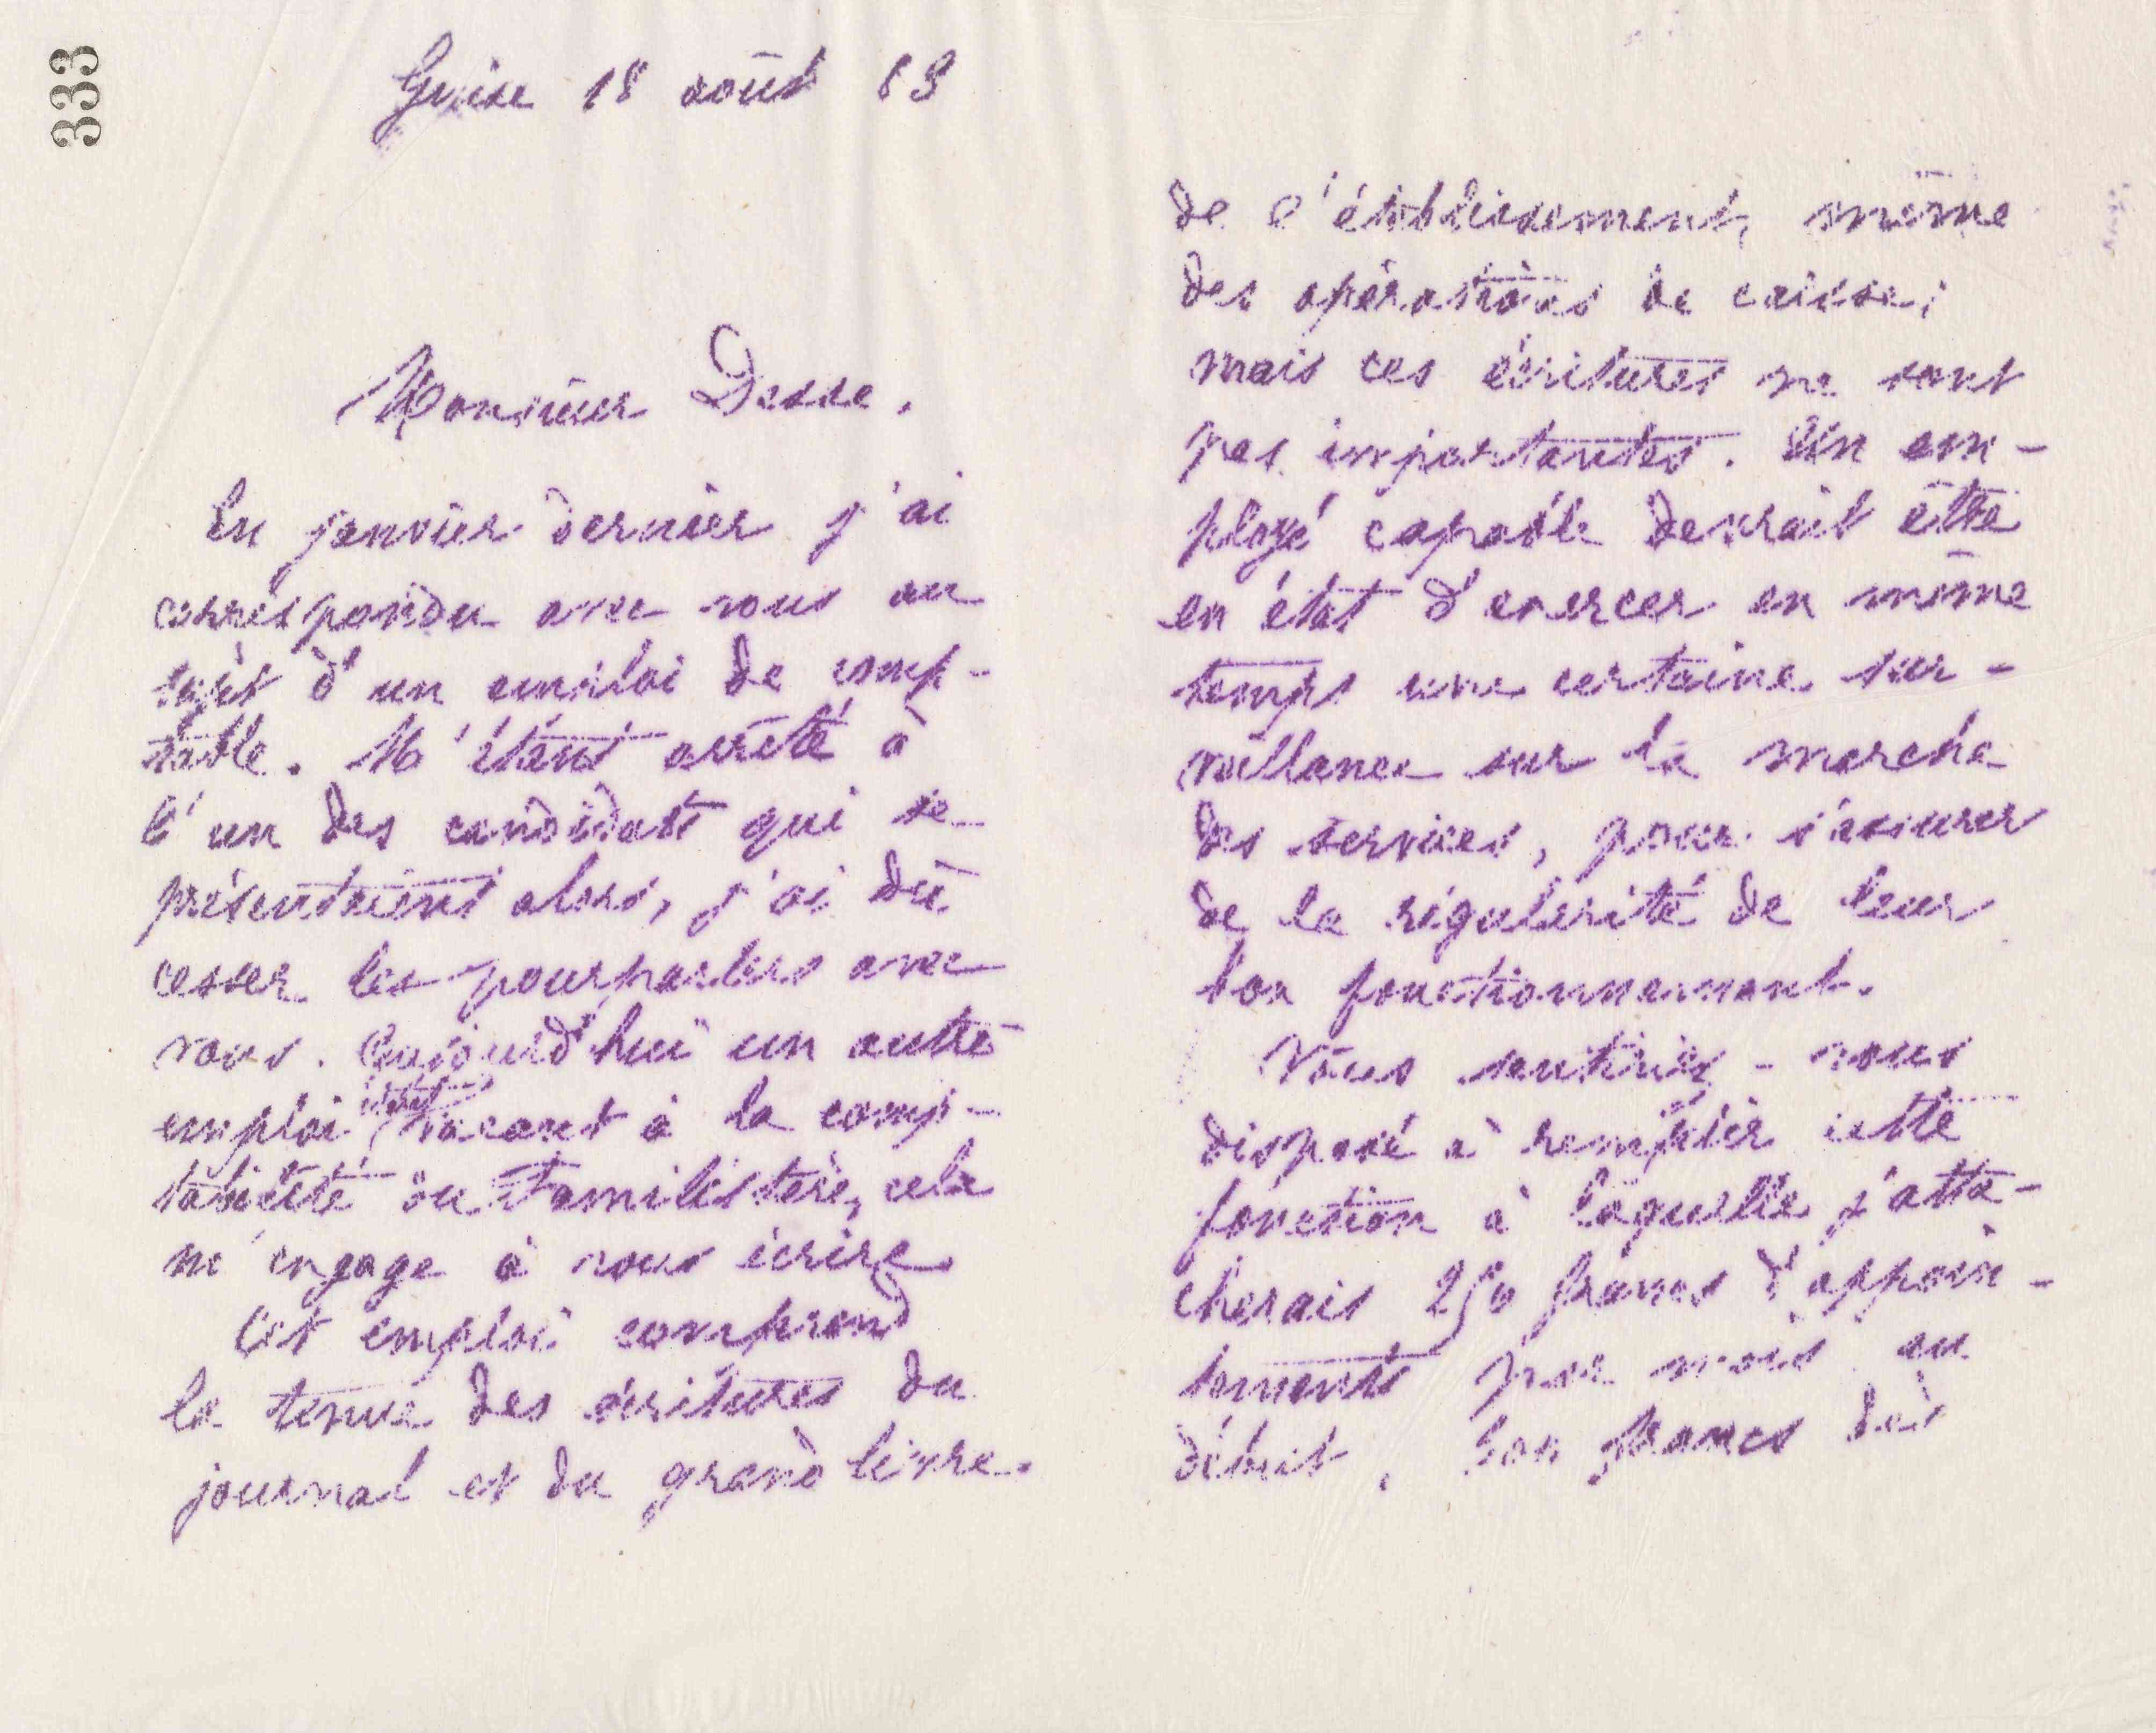 333
Guise 18 août 83
Monsieur Desse.
En janvier dernier j'ai
correspondu avec vous au
sujet d'un emploi de comp-
table. M'étant arrêté à
l'un des candidats qui se
présentaient alors, j'ai dû
cesser les pourparlers avec
vous. Aujourd'hui un autre
emploi étant vacant à la comp-
tabilité du Familistère, cela
m'engage à vous écrire
Cet emploi comprend
la tenue des écritures du
journal et du grand livre.
de l'établissement, même
des opérations de caisse;
mais ces écritures ne sont
pas importantes. Un em-
ployé capable devrait être
en état d'exercer en même
temps une certaine sur-
veillance sur la marche
des services, pour s'assurer
de la régularité de leur
bon fonctionnement.
Vous sentiriez-vous
disposé à remplir cette
fonction à laquelle j'atta-
cherais 250 francs d'appoin-
tements par mois au
début, francs dès